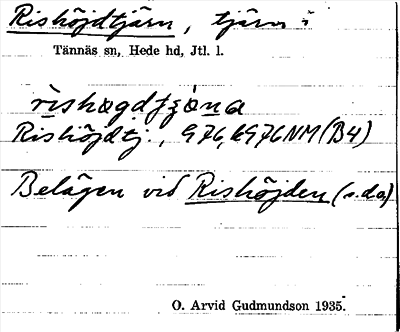 Rishöjdtjärn, tjärn i
Tännäs sn, Hede hd, Jtl. l.
Rishöjdtj., 976, k976NM (B4)
Belägen vid Rishöjden (s.da)
O. Arvid Gudmundson 1935.